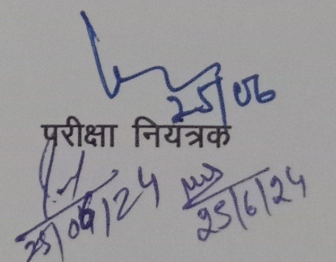 25/06
परीक्षा नियंत्रक
25/06/24 25/6/24